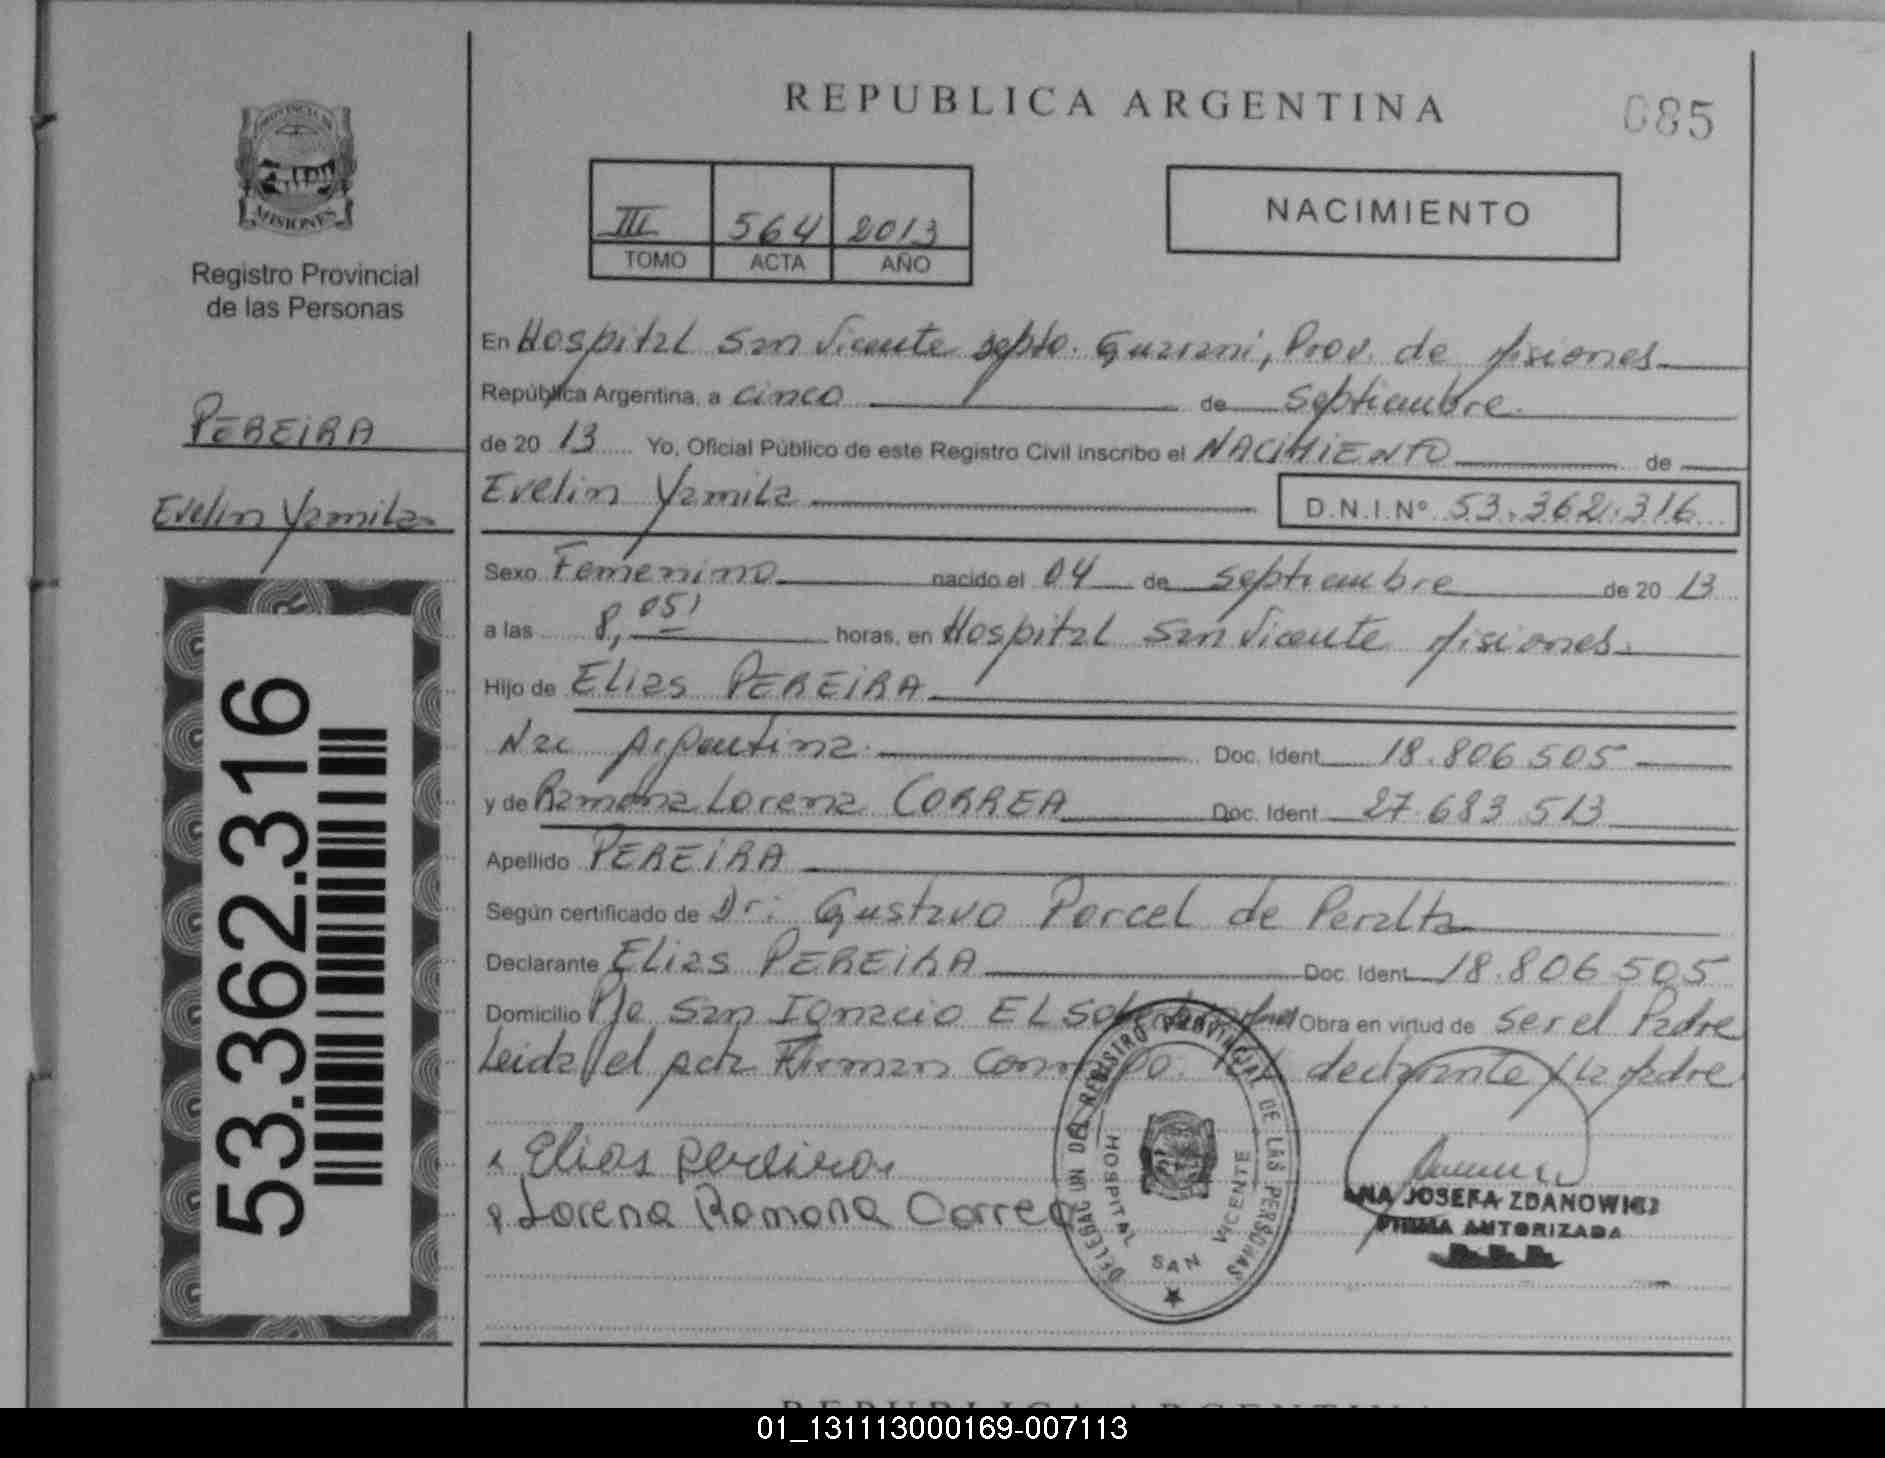 PROVINCIA DE
MISIONES
Registro Provincial
de las Personas
PEREIRA
Evelin Yamila
53.362.316
REPUBLICA ARGENTINA
085
III 564 2013
TOMO ACTA AÑO
NACIMIENTO
En Hospital San Vicente Depto. Guarani, Prov. de Misiones
República Argentina, a cinco de Septiembre
de 20 13 Yo, Oficial Público de este Registro Civil inscribo el NACIMIENTO de
Evelin Yamila D.N.I.Nº 53.362.316
Sexo Femenino nacido el 04 de Septiembre de 20 13
a las 8,05' horas, en Hospital San Vicente Misiones.
Hijo de Elias PEREIRA
Nac Argentina Doc. Ident. 18.806.505
y de Ramona Lorena CORREA Doc. Ident. 27.683.513
Apellido PEREIRA
Según certificado de Dr: Gustavo Porcel de Peralta
Declarante Elias PEREIRA Doc. Ident. 18.806.505
Domicilio Pje San Ignacio EL Soberbio Obra en virtud de ser el Padre
Leida el acta Firman Conmigo: el declarante y la Madre
Elias pereira
Lorena Ramona Correa
DELEGAC UN DEL REGISTRO PROVINCIAL DE LAS PERSONAS
HOSPITAL SAN VICENTE
ANA JOSEFA ZDANOWICZ
FIRMA AUTORIZADA
REPUBLICA ARGENTINA
01_131113000169-007113